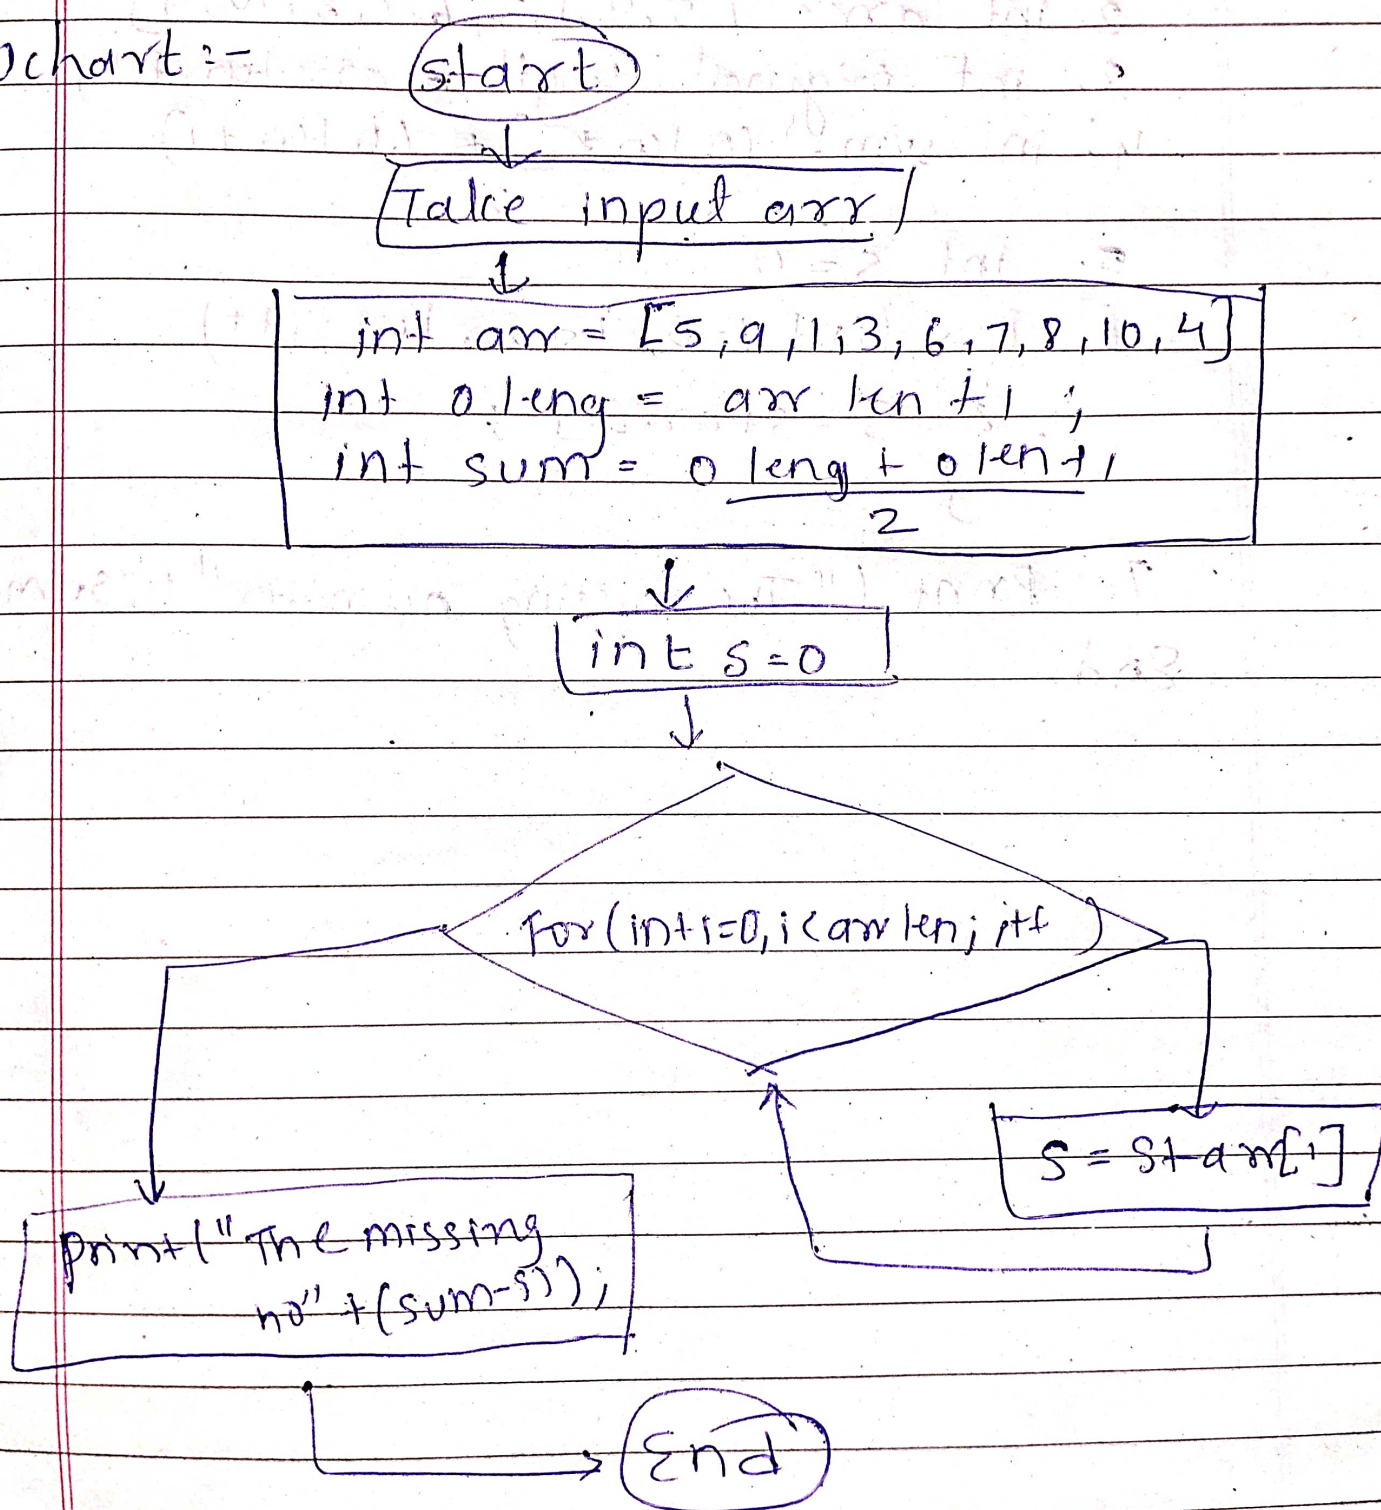 chart :-
Start
Take input arr
int arr = [5,9,1,3,6,7,8,10,4]
int o leng = arr len +1 ;
int sum = o leng + o len+1
2
int s=0
For(int i=0, i<arr len; i++)
S = S+arr[i]
print("The missing
no" + (sum-s));
End